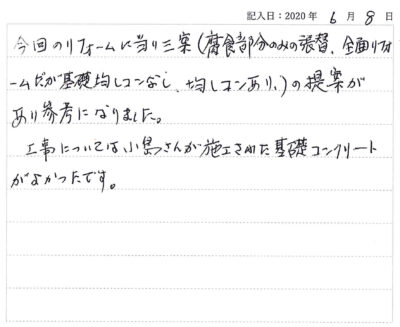 記入日：2020年 6月 8日
今回のリフォームに当り三案(腐食部分のみの張替、全面リフォ
ームだが基礎均しコンなし、均しコンあり、)の提案が
あり参考になりました。
工事については小島さんが施工された基礎コンクリート
がよかったです。